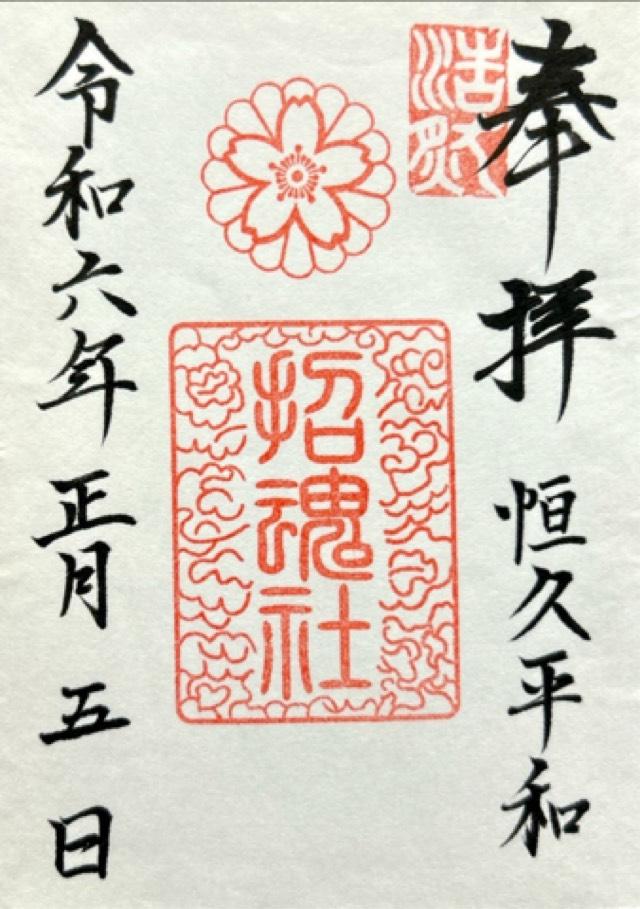 奉拝
恒久平和
浩然
招魂社
令和六年正月五日